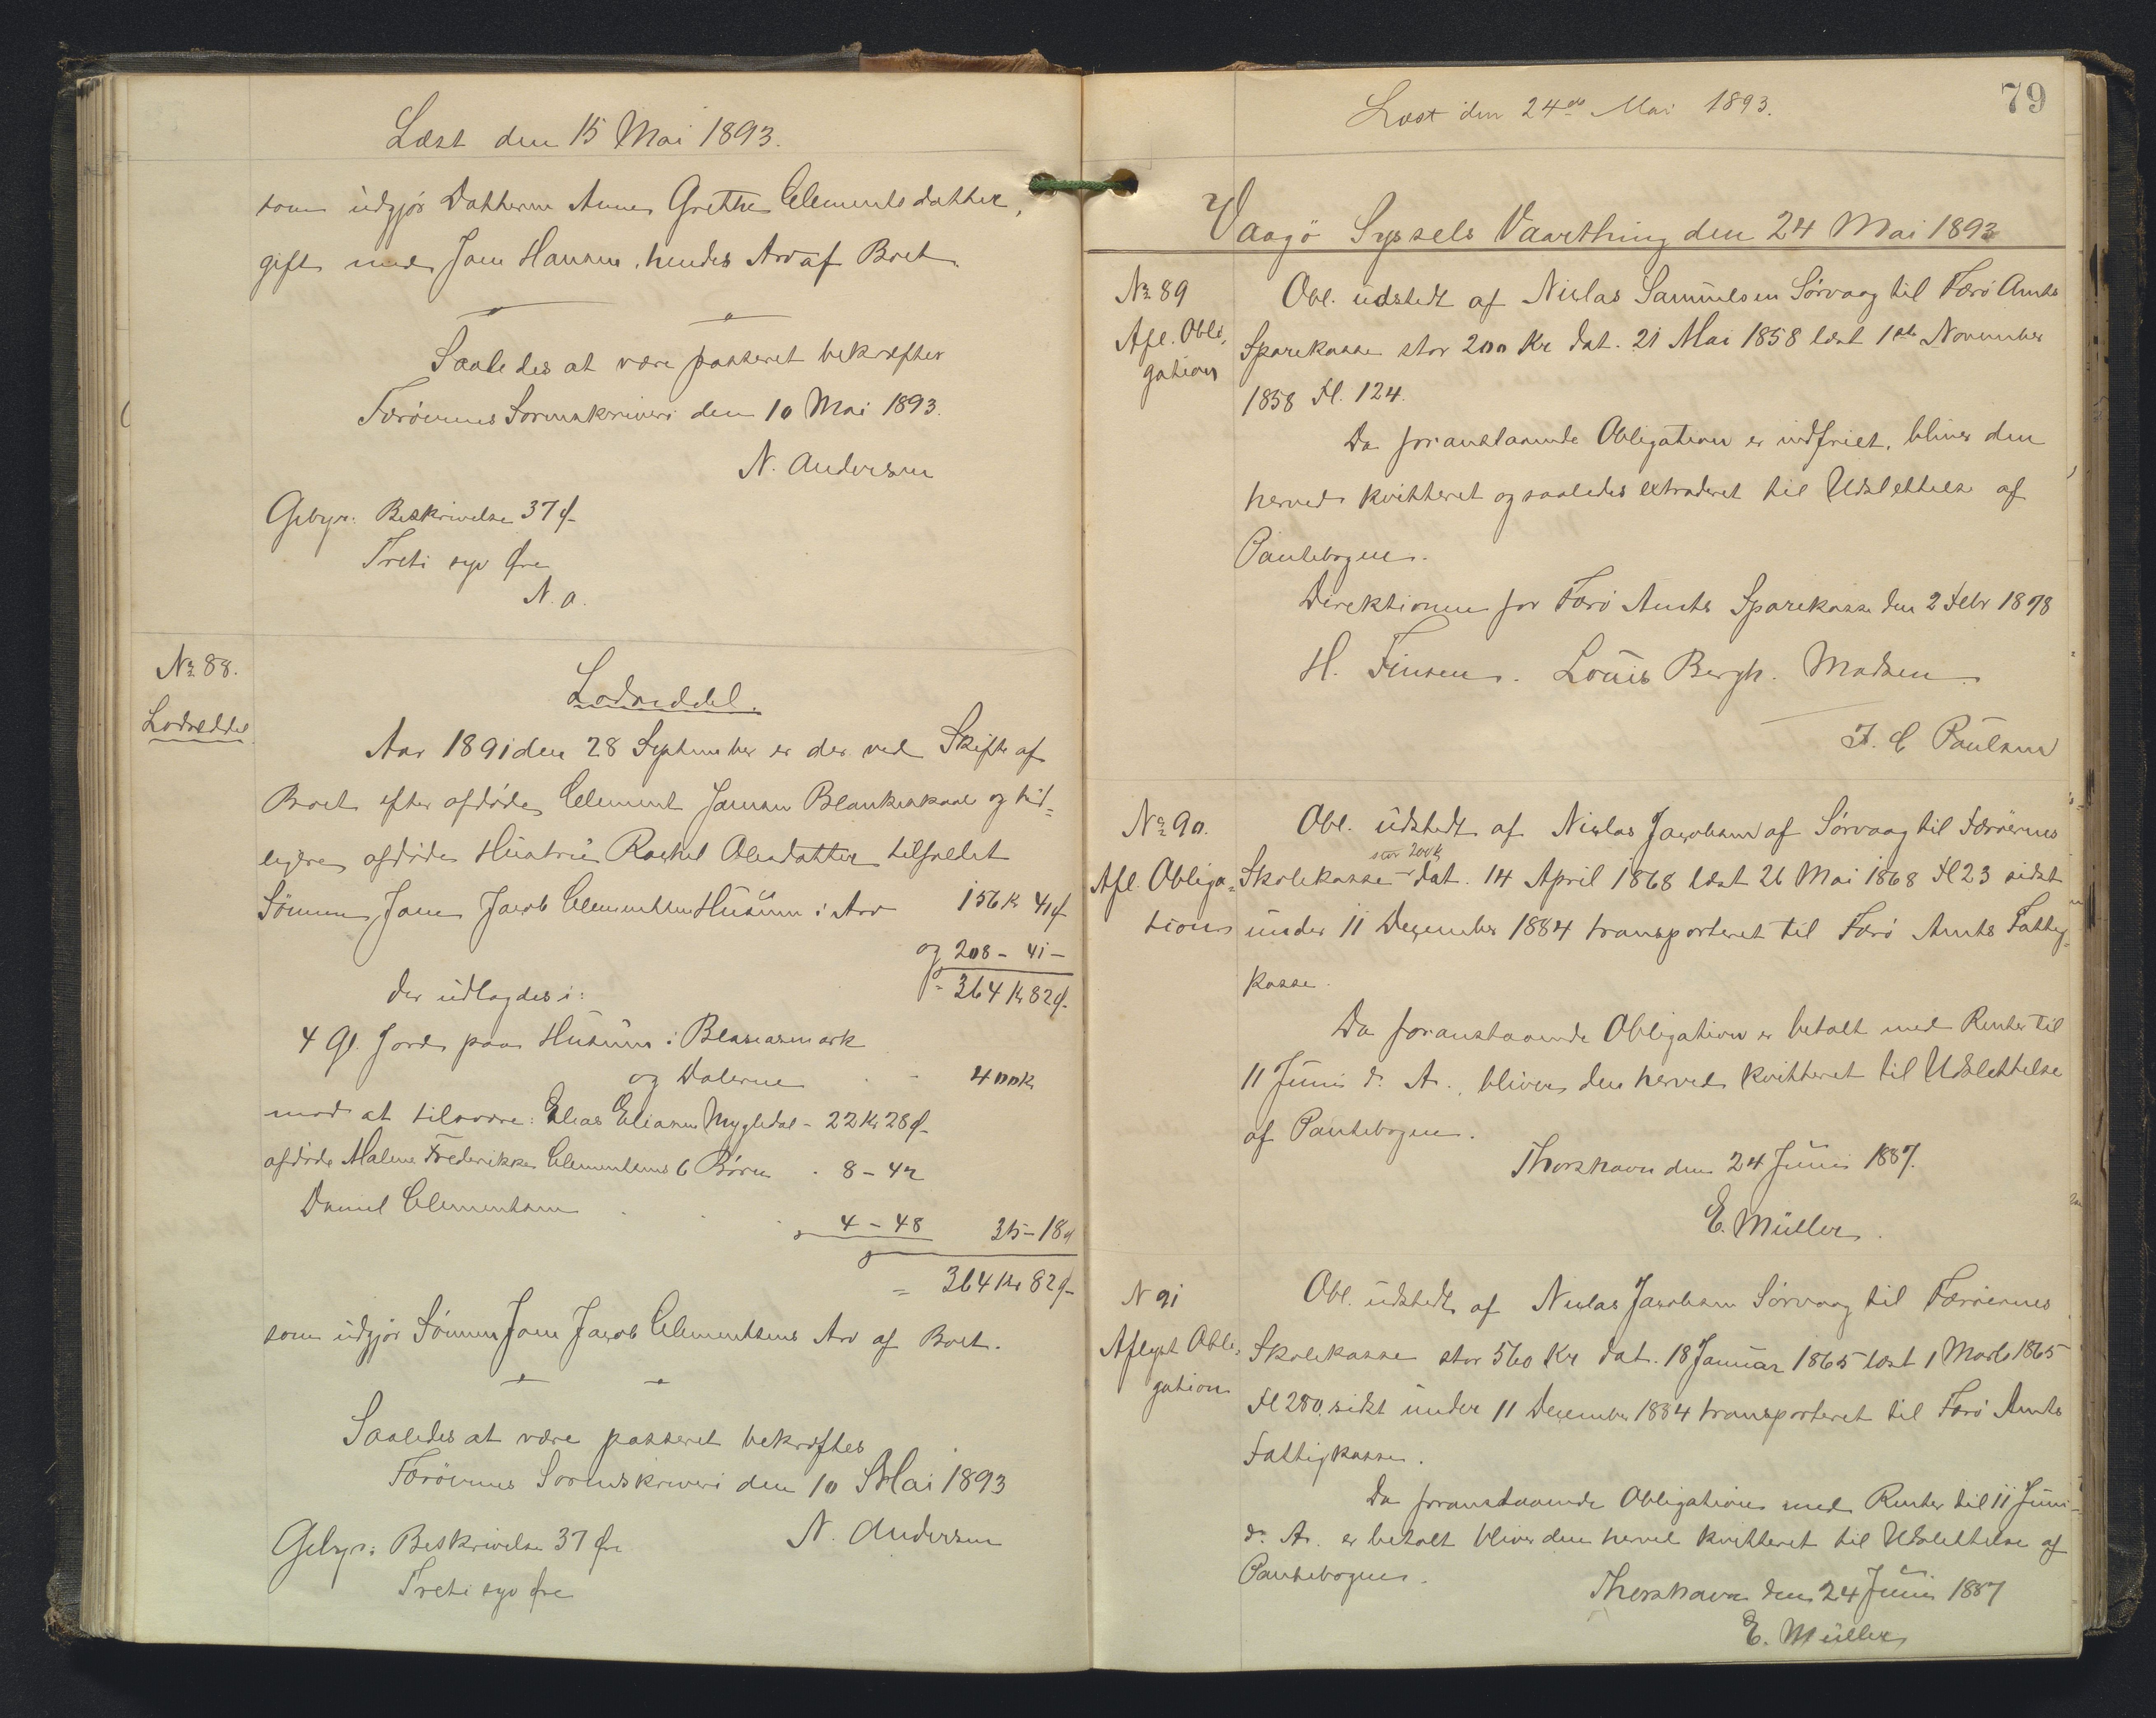 Læst den 15 Mai 1893.
som udgjør Datteren Anne Grethe Clementsdatter,
gift med Joen Hansen, hendes Arv af Boet.
Saaledes at være passeret bekræfter
Færøernes Sorenskriveri den 10 Mai 1893.
N. Andersen
Gebyr: Beskrivelse 37 Ø
Treti syv Øre
N. A.
No 88.
Lodseddel
Lodseddel.
Aar 1891 den 28 September er der ved Skifte af
Boet efter afdøde Clement Joensen Blankeskaale og tid=
ligere afdøde Hustru Rachel Olesdatter tilfaldet
Sønnen Joen Jacob Clementsen Husum i Arv 156 Kr 41 Ø
og 208 - 41 -
= 364 Kr 82 Ø
der udlagdes i:
4 Gl. Jord paa Husum i
og Dalerne 400 Kr
mod at tilsvare: Elias Eliasen Mygledal - 22 Kr 28 Ø
afdøde Malene Frederikke Clementsens 6 Børn - 8 - 42
Daniel Clementsen
4 - 48 35 - 18 Ø
= 364 Kr 82 Ø
som udgjør Sønnen Joen Jacob Clementsens Arv af Boet.
Saaledes at være passeret bekræftes
Færøernes Sorenskriveri den 10 Mai 1893
N. Andersen
Gebyr: Beskrivelse 37 Øre
Treti syv Øre
79
Læst den 24de Mai 1893.
Vaagö Syssels Vaarthing den 24 Mai 1893
No 89
Afl. Obli,
gation
Obl. udstedt af Niclas Samuelsen Sørvaag til Færö Amts
Sparekasse stor 200 Kr dat. 21 Mai 1858 læst 1ste November
1858 Fl. 124.
Da foranstaaende Obligation er indfriet, bliver den
herved kvitteret og saaledes extraderet til Udslettelse af
Pantebogen.
Direktionen for Færö Amts Sparekasse den 2 Febr 1878
H. Finsen. Louis Bergh. Madsen
F. C Paulsen
No 90.
Afl. Obliga=
tion
Obl. udstedt af Niclas Jacobsen af Sørvaag til Færöernes
stor 200 Kr
Skolekasse dat. 14 April 1868 læst 26 Mai 1868 Fl 23 sidst
under 11 Dezember 1884 transporteret til Færö Amts Fattig=
kasse.
Da foranstaaende Obligation er betalt med Renter til
11 Juni d. A., bliver den herved kvitteret til Udslettelse
af Pantebogen.
Thorshavn den 24 Juni 1887.
E. Müller.
N 91
Aflyst Obli=
gation
Obl. udstedt af Niclas Jacobsen Sörvaag til Færöernes
Skolekasse stor 560 Kr dat. 18 Januar 1865 læst 1 Marts 1865
Fl 280, sidst under 11 December 1884 transporteret til Færö Amts
Fattigkasse.
Da foranstaaende Obligation med Renter til 11 Juni
d. A. er betalt bliver den herved kvitteret til Udslettelse af
Pantebogen.
Thorshavn den 24 Juni 1887
E. Müller